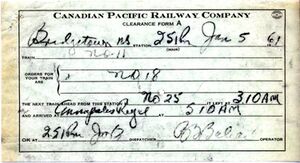 CANADIAN PACIFIC RAILWAY COMPANY
CLEARANCE FORM A
Bridgetown NS STATION, 251PM Jan 5 1961
TRAIN No 11
ORDERS FOR YOUR TRAIN ARE: No 18
THE NEXT TRAIN AHEAD FROM THIS STATION No 25 LEFT AT 310AM
AND ARRIVED Annapolis Royal AT 510AM
251PM OPERATOR
DISPATCHER